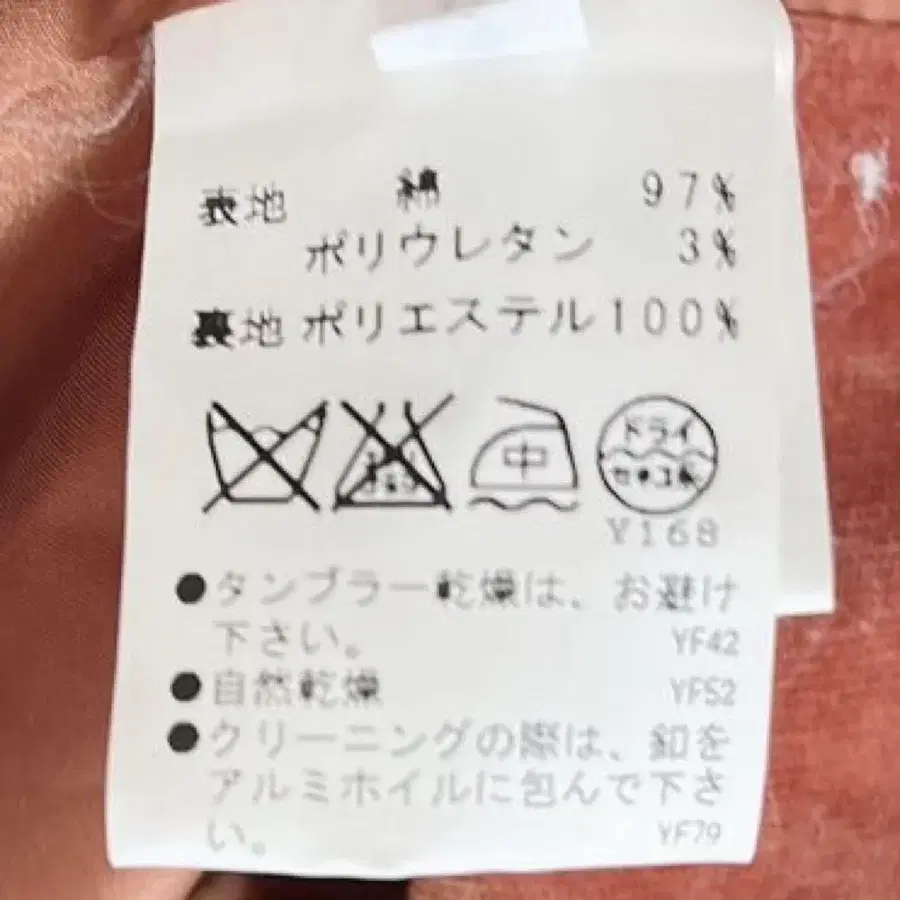 表地 綿 97%
ポリウレタン 3%
裏地 ポリエステル 100%
中
ドライ
セキユ系
Y168
●タンブラー乾燥は、お避け
下さい。 YF42
●自然乾燥 YF52
●クリーニングの際は、釦を
アルミホイルに包んで下さ
い。 YF79